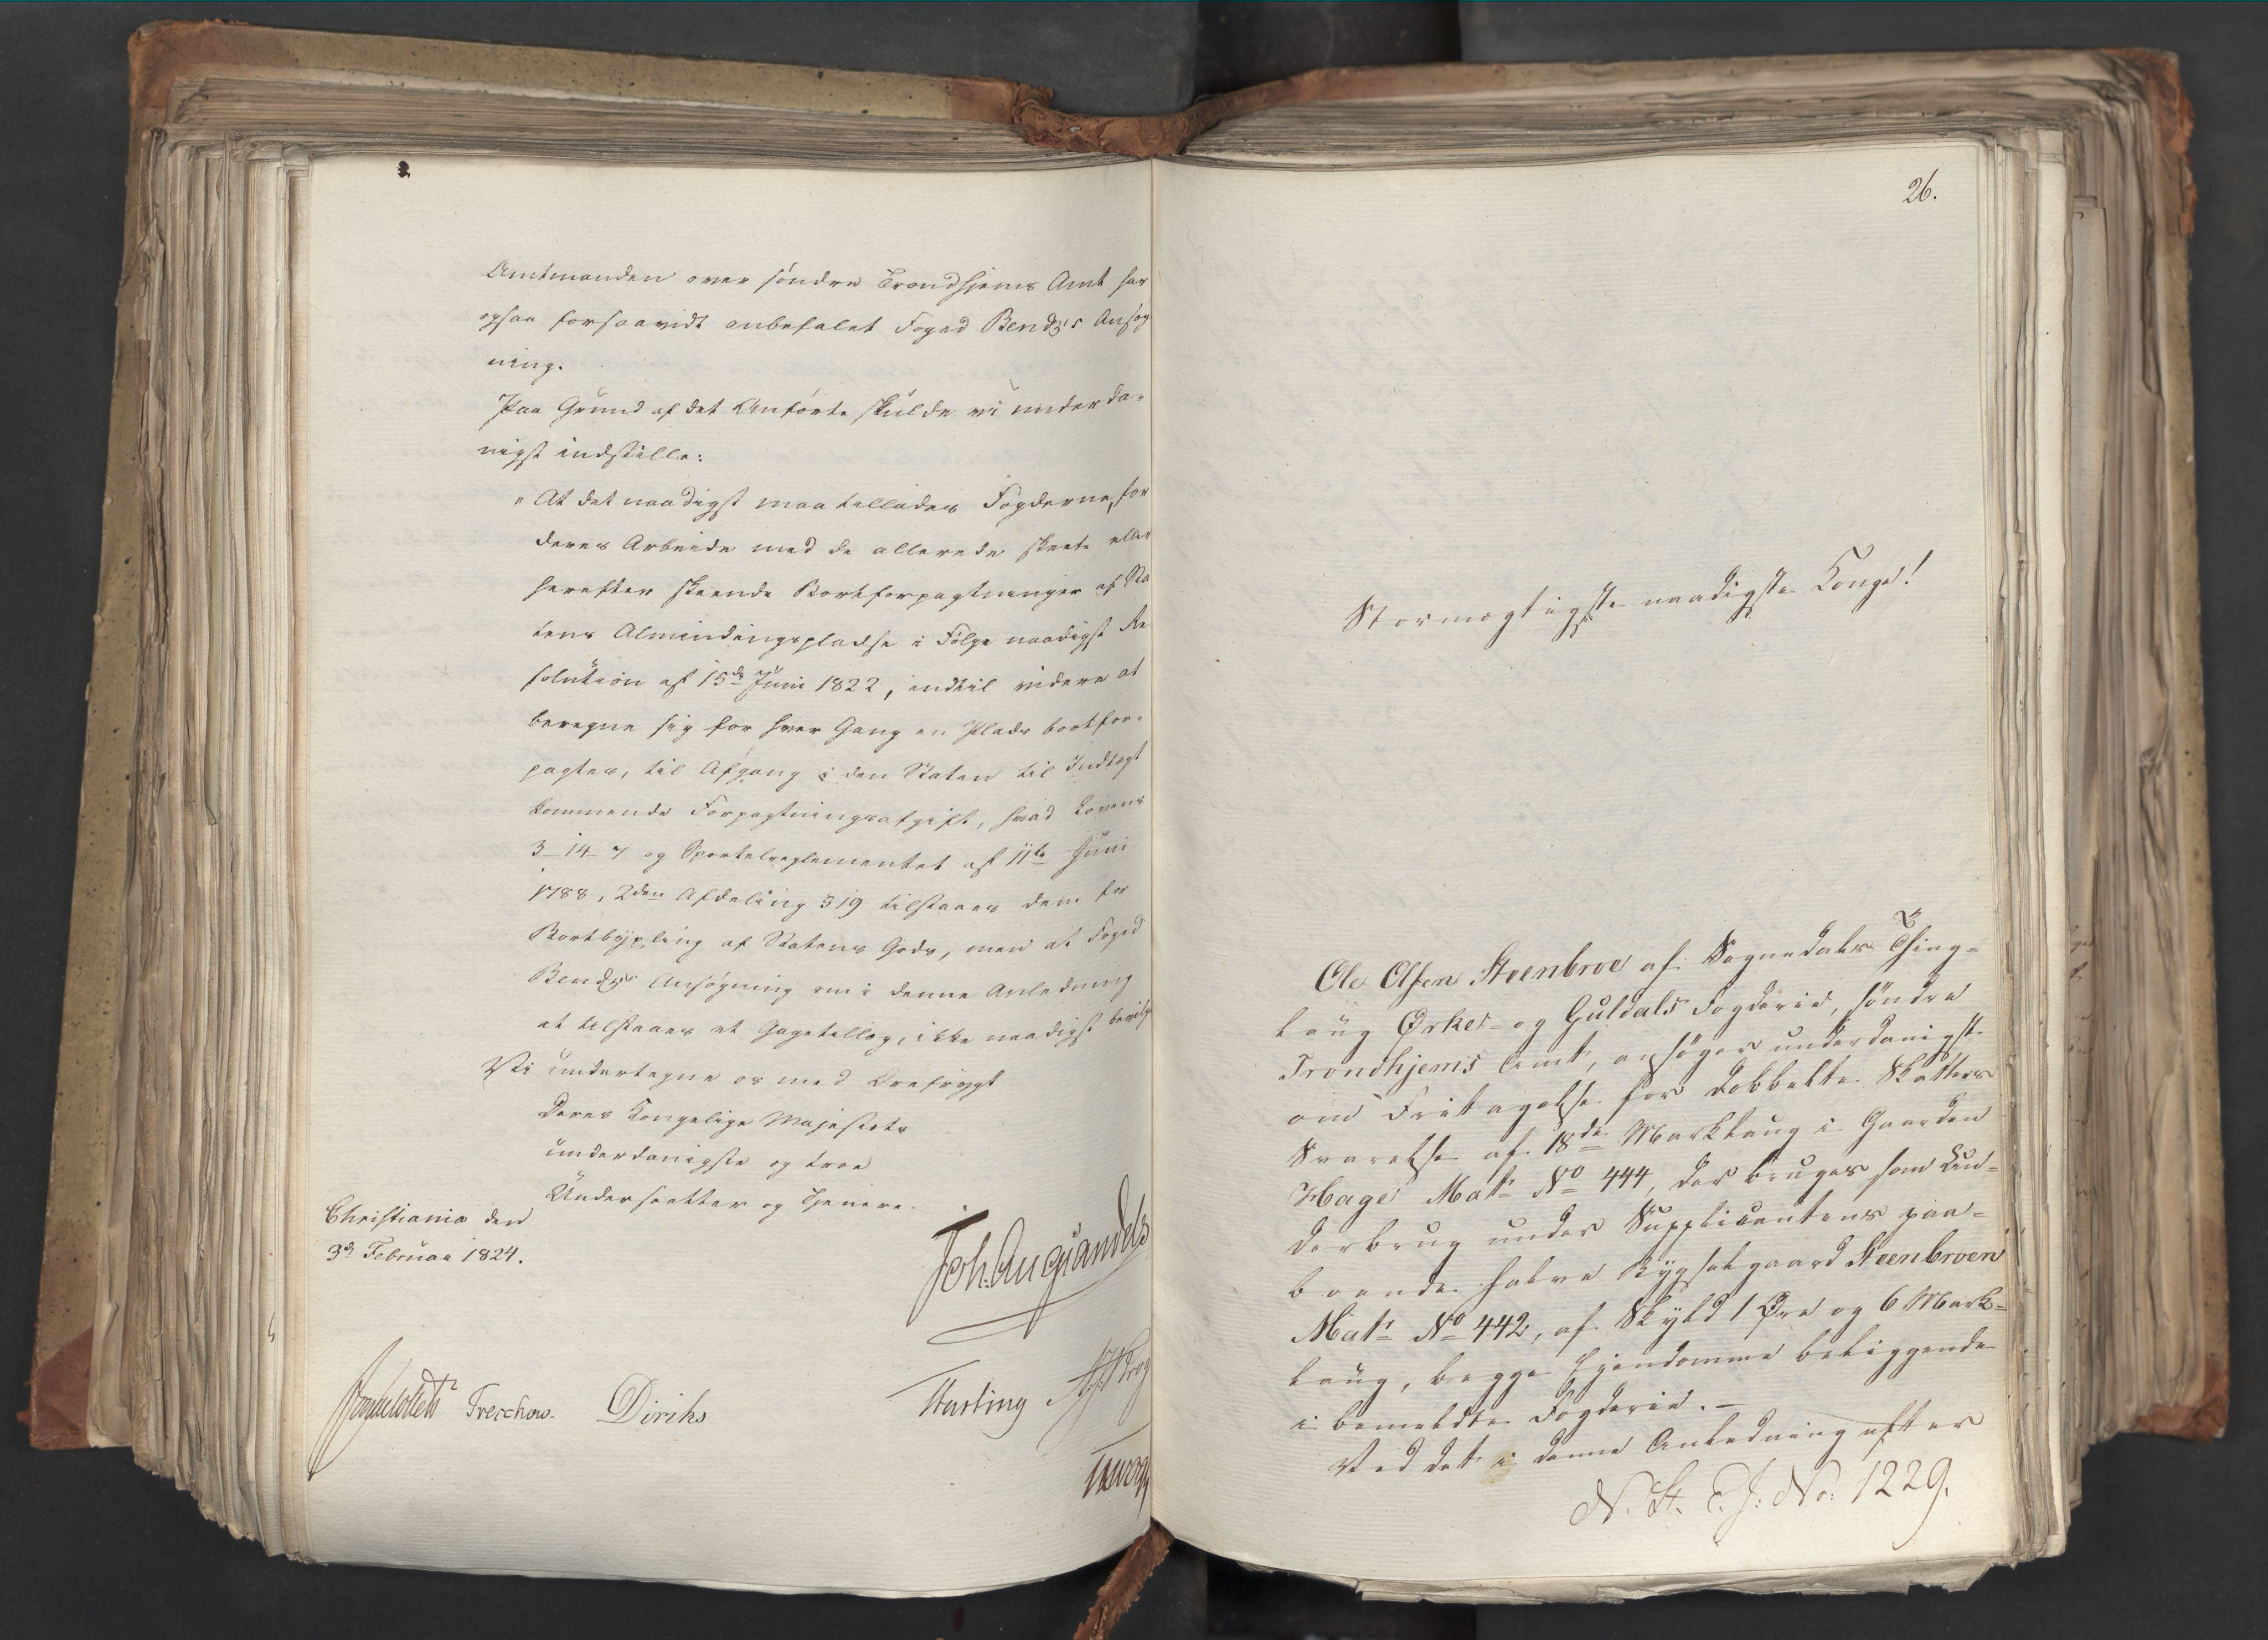 Amtmanden over søndre Trondhjems Amt har
ogsaa forsaavidt anbefalet Foged Bendz's Ansøg
ning.
Paa Grund af det Anførte skulde vi underda-
nigst indstille:
"At det naadigst maa tillades Fogderne, for
deres Arbeide med de allerede skeete eller
herefter skeende Bortforpagtninger af Sta
tens Almindingspladse i Følge naadigst Re
solution af 15de Juni 1822, indtil videre at
beregne sig for hver Gang en Plads bortfor-
pagtes, til Afgang i den Staten til Indtægt
kommende Forpagtningsafgift, hvad Lovens
3-14-7 og Sportelreglementet af 11te Juni
1788, 2den Afdeling § 19 tilstaaes dem for
Bortbygsling af Statens Gods, men at Foged
Bendz's Ansøgning om i denne Anledning
at tilstaaes et Gagetillæg, ikke naadigst bevilges
Vi undertegne os med Ærefrygt
Deres Kongelige Majestets
underdanigste og troe
Undersaatter og Tjenere.
Christiania den
3de Februar 1824.
Joh. Aug. Sandels
Jonas Collett Treschow. Diriks Hasting Krog
26.
Stormægtigste naadigste Konge!
Ole Olsen Steenbroe af Sognedals Thing-
laug Ørke- og Guldals Fogderie, søndre
Trondhjems Amt, ansøger underdanigst
om Fritagelse for dobbelte Skatters
Svarelse af 18de Marklaug i Gaarden
Hage Matr No 444, der bruges som Un-
derbrug under Supplicantens paa-
boende halve Bygselgaard Steenbroen
Matr No 442, af Skyld 1 Øre og 6 Mark-
laug, begge Eiendomme beliggende
i bemeldte Fogderie. -
Ved det i denne Anledning efter
N. St. E. J: No: 1229.